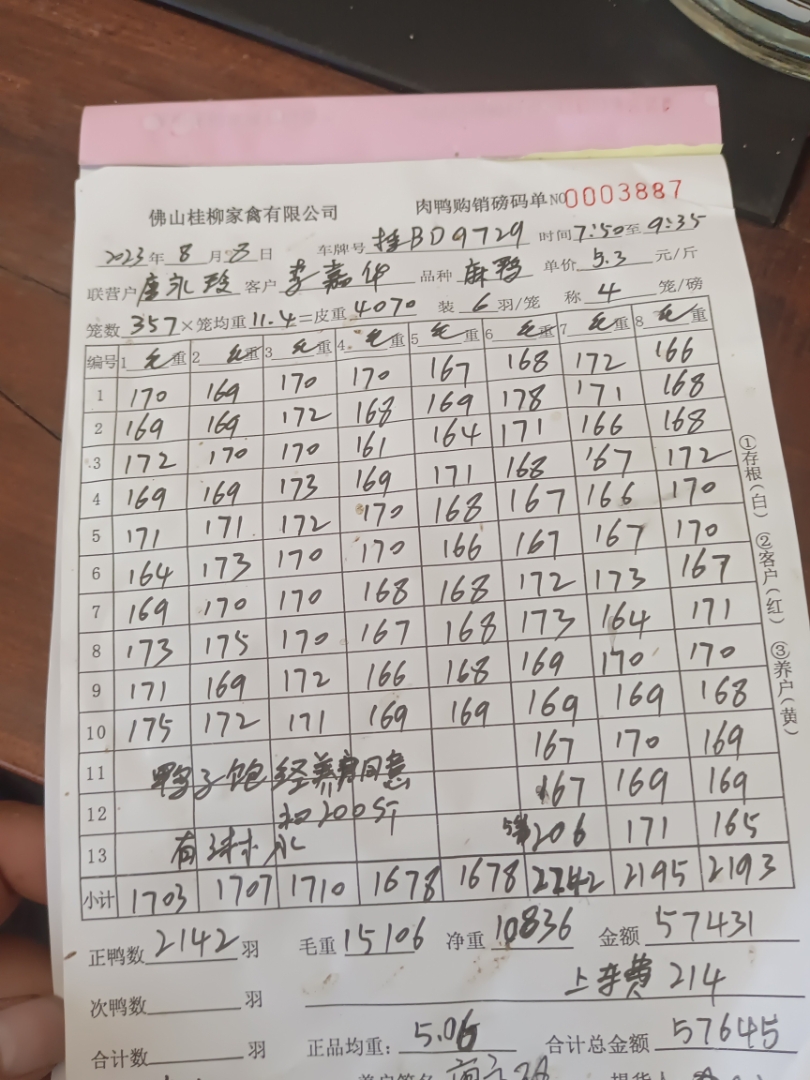 佛山桂柳家禽有限公司 肉鸭购销磅码单 NO 0003887
2023年 8 月 8 日 车牌号 桂BD9729 时间 7:50 至 9:35
联营户 唐永珍 客户 李嘉华 品种 麻鸭 单价 5.3 元/斤
笼数 357 × 笼均重 11.4 = 皮重 4070 装 6 羽/笼 称 4 笼/磅
编号 1 毛重 2 毛重 3 毛重 4 毛重 5 毛重 6 毛重 7 毛重 8 毛重
1 170 169 170 170 167 168 172 166
2 169 169 172 168 169 178 171 168
3 172 170 170 161 164 171 166 168
4 169 169 173 169 171 168 167 172
5 171 171 172 170 168 167 166 170
6 164 173 170 170 166 167 167 170
7 169 170 170 168 168 172 173 167
8 173 175 170 167 168 173 164 171
9 171 169 172 166 168 169 170 170
10 175 172 171 169 169 169 169 168
11 鸭子饱 经养户同意 167 170 169
12 扣200斤 167 169 169
13 有 水 206 171 165
小计 1703 1707 1710 1678 1678 2242 2195 2193
正鸭数 2142 羽 毛重 15106 净重 10836 金额 57431
次鸭数 羽 上车费 214
合计数 羽 正品均重: 5.06 合计总金额 57645
养户签名 提货人
①存根(白) ②客户(红) ③养户(黄)